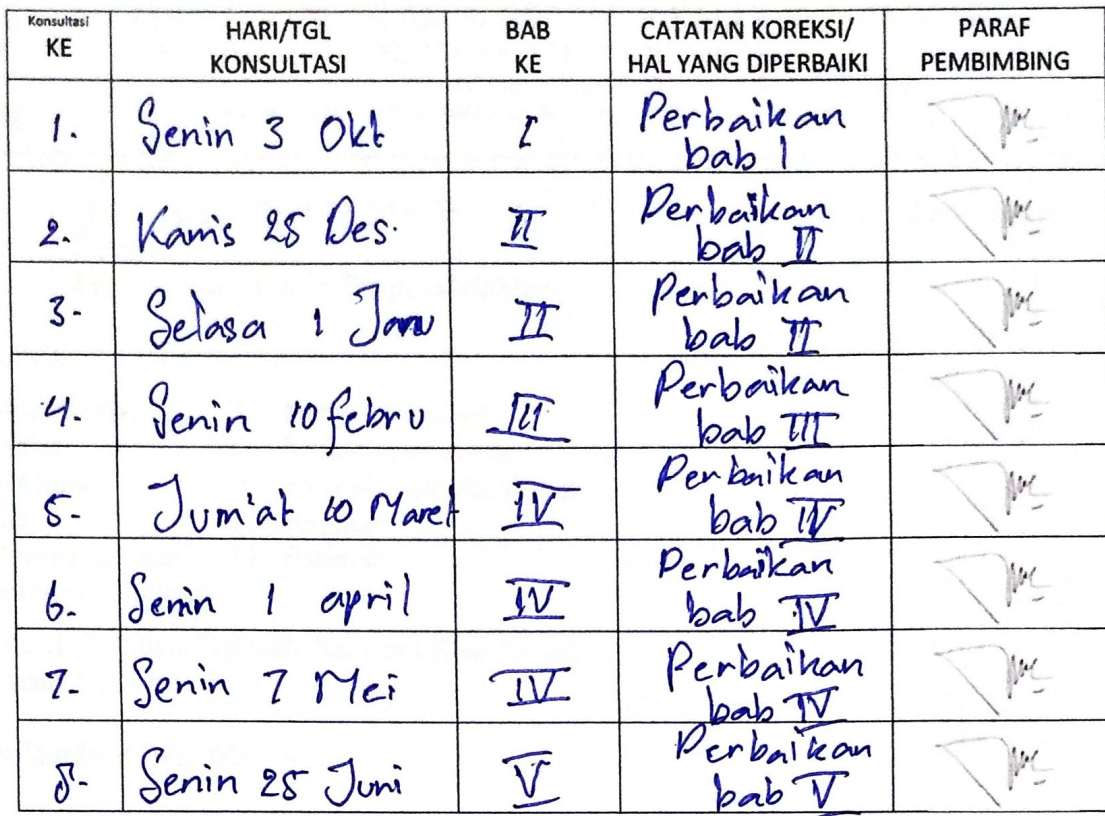 Konsultasi KE HARI/TGL KONSULTASI BAB KE CATATAN KOREKSI/ HAL YANG DIPERBAIKI PARAF PEMBIMBING
1. Senin 3 Okt I Perbaikan bab 1
2. Kamis 25 Des. II Perbaikan bab II
3- Selasa 1 Janu II Perbaikan bab II
4. Senin 10 febru III Perbaikan bab III
5- Jum'at 10 Maret IV Perbaikan bab IV
6- Senin 1 april IV Perbaikan bab IV
7- Senin 7 Mei IV Perbaikan bab IV
8- Senin 25 Juni V Perbaikan bab V